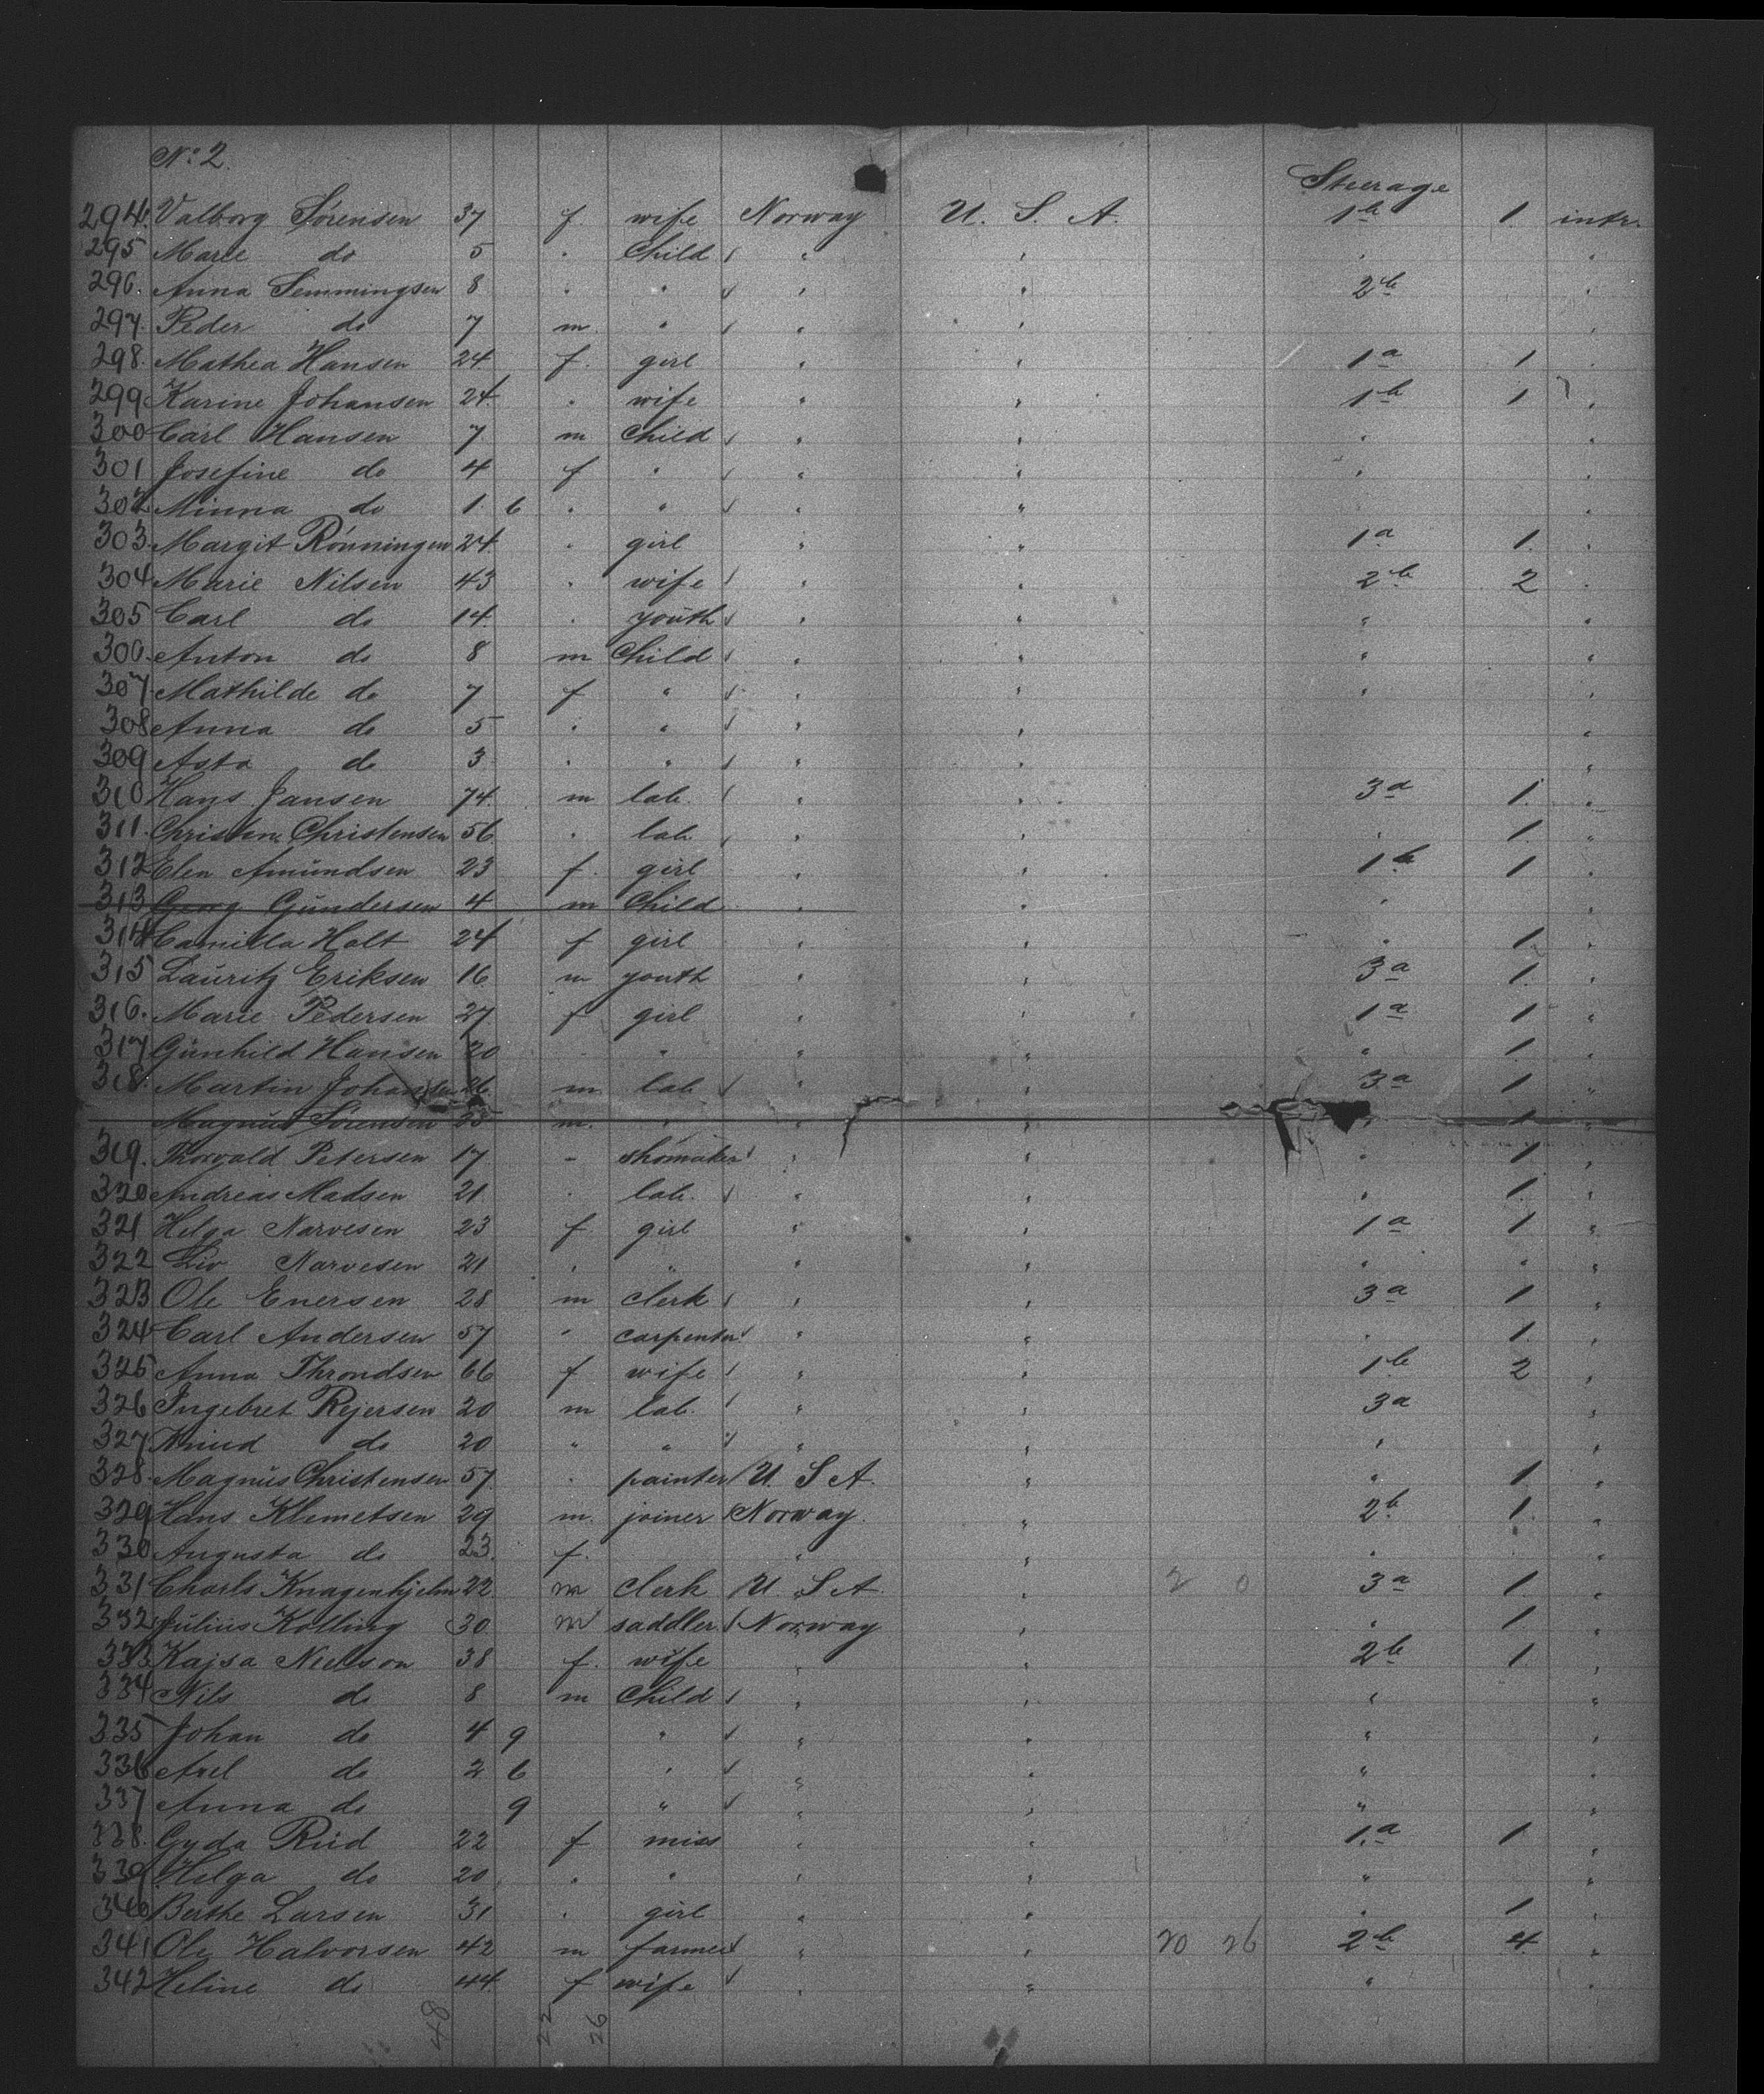 No. 2.
Steerage
294. Valborg Sørensen 37 f. wife Norway U. S. A. 1 b 1 intr.
295 Marie do 5 " Child " " " "
296. Anna Semmingsen 8 " " " " 2 b "
297. Peder do 7 m " " " "
298. Mathea Hansen 24 f. girl " " 1 a 1 "
299 Karine Johansen 24. " wife " " 1 b 1 "
300 Carl Hansen 7 m Child " " " "
301 Josefine do 4 f " " " " "
302 Minna do 1 6 " " " " "
303. Margit Rønningen 24. " girl " " 1 a 1. "
304 Marie Nilsen 43 " wife " " 2 b 2 "
305 Carl do 14. " youth " " " "
306. Anton do 8 m Child " " " "
307 Mathilde do 7 f " " " " "
308 Anna do 5 " " " " "
309 Asta do 3 " " " " "
310 Hans Jansen 74. m lab. " " 3 a 1. "
311. Christen Christensen 56 " lab " " " 1. "
312 Elen Amundsen 23 f. girl " " 1 b 1 "
313 Georg Gundersen 4 m Child " " " "
314 Camilla Holt 24 f girl " " " 1. "
315 Lauritz Eriksen 16 m youth " " 3 a 1. "
316. Marie Pedersen 27 f girl " " 1 a 1 "
317 Gunhild Hansen 20 " " " " " 1. "
318. Martin Johansen 26 m lab " " 3 a 1 "
Magnus Sørensen 25 m. " " " " 1 "
319. Thorvald Petersen 17 - shomaker " " " 1 "
320 Andreas Madsen 21 " lab. " " " 1. "
321 Helga Narvesen 23 f. girl " " 1 a 1 "
322 Liv Narvesen 21 " " " " " " "
323 Ole Enersen 28 m clerk " " 3 a 1 "
324 Carl Andersen 57 " carpenter " " " 1. "
325 Anna Throndsen 66 f wife " " 1 b 2 "
326 Ingebret Rejersen 20 m lab. " " 3 a "
327 Knud do 20 " " " " " "
328. Magnus Christensen 57. " painter U. S A. " " 1 "
329 Hans Klemetsen 29 m. joiner Norway. " 2 b 1. "
330 Augusta do 23. f. " " " "
331 Charls Knagenhjelm 22. m clerk U. S A. " 2 0 3 a 1. "
332 Julius Kolling 30. m saddler Norway " " 1. "
333 Kajsa Nielson 38 f. wife " " 2 b 1. "
334 Nils do 8 m Child " " " "
335 Johan do 4 9 " " " " "
336 Axel do 2 6 " " " " "
337 Anna do 9 " " " " "
338. Gyda Rud 22 f miss " " 1. a 1 "
339. Helga do 20 " " " " " "
340 Berthe Larsen 31 " girl " " " 1 "
341 Ole Halvorsen 42 m farmer " " 20 26 2 b 4. "
342 Heline do 44. f wife " " " "
48 22 26